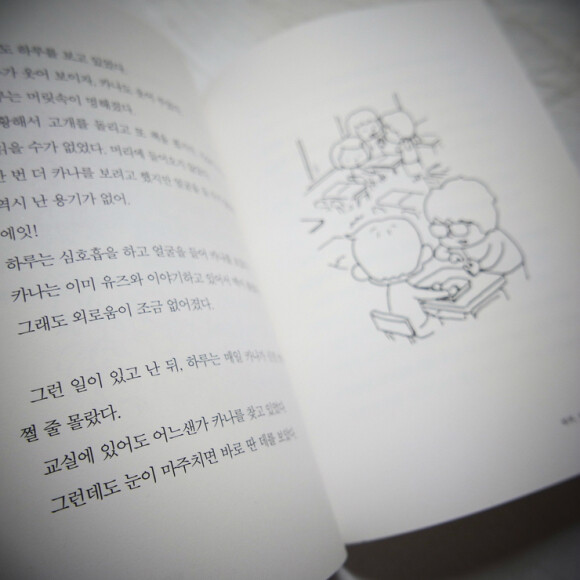 도 하루를 보고 있었다.
가 웃어 보이자, 카나도 웃어
루는 머릿속이 멍해졌다.
황해서 고개를 돌리고 또 책을
읽을 수가 없었다. 머리에 들어오지
한 번 더 카나를 보려고 했지만 얼굴을
역시 난 용기가 없어.
에잇!
하루는 심호흡을 하고 얼굴을 들어 카나를
카나는 이미 유즈와 이야기하고 있어서
그래도 외로움이 조금 없어졌다.
그런 일이 있고 난 뒤, 하루는 매일 카나가
쩔 줄 몰랐다.
교실에 있어도 어느샌가 카나를 찾고 있었다.
그런데도 눈이 마주치면 바로 딴 데를 보았다.